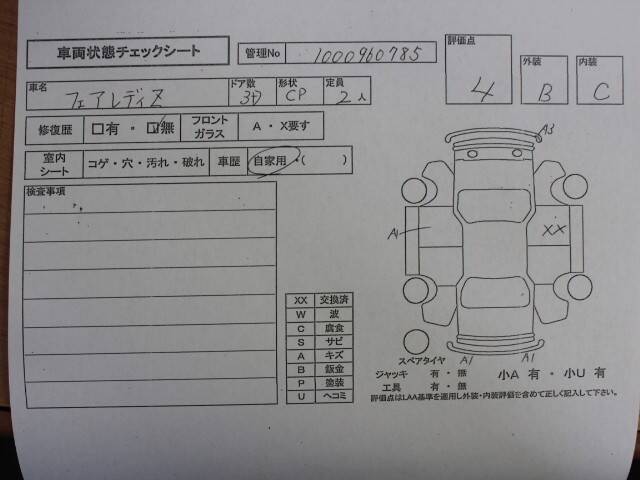 車両状態チェックシート
管理No 1000960785
評価点 4
外装 B
内装 C
車名 フェアレディZ
ドア数 3D
形状 CP
定員 2人
修復歴 □有 ・ ☑無
フロントガラス A ・ X要す
室内シート コゲ・穴・汚れ・破れ
車歴 自家用・( )
検査事項
A3
A1
XX
XX 交換済
W 波
C 腐食
S サビ
A キズ
B 鈑金
P 塗装
U ヘコミ
スペアタイヤ A1 A1
ジャッキ 有・無 小A 有・小U 有
工具 有・無
評価点はLAA基準を運用し外装・内装評価を含めて正しく記入して下さい。